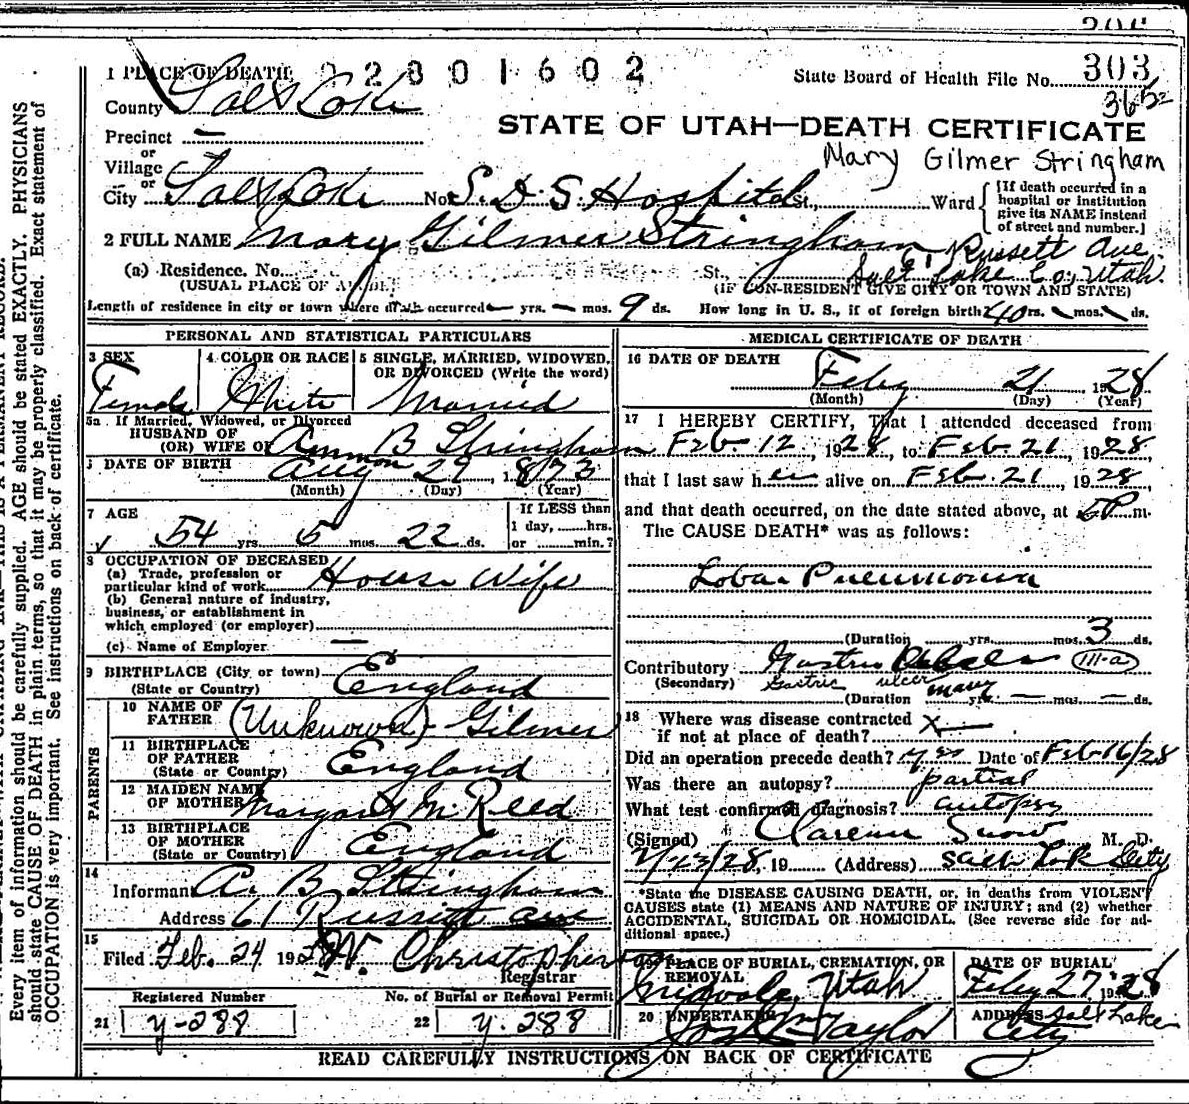 303
1 PLACE OF DEATH 02801602 State Board of Health File No. 303
County Salt Lake
STATE OF UTAH—DEATH CERTIFICATE
Precinct —
Mary Gilmer Stringham
or
Village
or
City Salt Lake No. L. D. S. Hospital St., Ward
[If death occurred in a hospital or institution give its NAME instead of street and number.]
2 FULL NAME Mary Gilmer Stringham
(a) Residence. No. St., 61 Russett Ave. Salt Lake Co., Utah.
(USUAL PLACE OF ABODE) (IF NON-RESIDENT GIVE CITY OR TOWN AND STATE)
Length of residence in city or town where death occurred — yrs. — mos. 9 ds. How long in U. S., if of foreign birth 40 yrs. — mos. — ds.
PERSONAL AND STATISTICAL PARTICULARS
3 SEX
Female
4 COLOR OR RACE
White
5 SINGLE, MARRIED, WIDOWED, OR DIVORCED (Write the word)
Married
5a If Married, Widowed, or Divorced
HUSBAND OF
(OR) WIFE OF Ammon B Stringham
6 DATE OF BIRTH Aug 29, 1873
(Month) (Day) (Year)
7 AGE
54 yrs. 5 mos. 22 ds.
If LESS than
1 day, ......hrs.
or ......min.?
8 OCCUPATION OF DECEASED
(a) Trade, profession or
particular kind of work House Wife
(b) General nature of industry,
business, or establishment in
which employed (or employer)
(c) Name of Employer —
9 BIRTHPLACE (City or town)
(State or Country) England
PARENTS
10 NAME OF
FATHER (Unknown) - Gilmer
11 BIRTHPLACE
OF FATHER
(State or Country) England
12 MAIDEN NAME
OF MOTHER Margaret McReed
13 BIRTHPLACE
OF MOTHER
(State or Country) England
14
Informant A. B. Stringham
Address 61 Russett ave
15
Filed Feb. 24 1928 W. Christopherson
Registrar
Registered Number No. of Burial or Removal Permit
21 y-288 22 y-288
MEDICAL CERTIFICATE OF DEATH
16 DATE OF DEATH
Feby 21 1928
(Month) (Day) (Year)
17 I HEREBY CERTIFY, That I attended deceased from
Feb. 12, 1928, to Feb. 21, 1928
that I last saw her alive on Feb. 21, 1928
and that death occurred, on the date stated above, at 5P m.
The CAUSE DEATH* was as follows:
Lobar Pneumonia
(Duration ......yrs. ......mos. 3 ds.
Contributory Gastric Ulcer III-a
(Secondary) Gastric ulcer
(Duration many yrs. — mos. — ds.
18 Where was disease contracted
if not at place of death? X —
Did an operation precede death? yes Date of Feb-16/28
Was there an autopsy? partial
What test confirmed diagnosis? autopsy
(Signed) Clarence Snow M. D.
2/23/28, 19 (Address) Salt Lake City
*State the DISEASE CAUSING DEATH, or, in deaths from VIOLENT
CAUSES state (1) MEANS AND NATURE OF INJURY; and (2) whether
ACCIDENTAL, SUICIDAL OR HOMICIDAL. (See reverse side for ad-
ditional space.)
19 PLACE OF BURIAL, CREMATION, OR
REMOVAL
Midvale, Utah
DATE OF BURIAL
Feby 27, 1928
20 UNDERTAKER
Jos. Wm Taylor
ADDRESS Salt Lake
City
READ CAREFULLY INSTRUCTIONS ON BACK OF CERTIFICATE
Every item of information should be carefully supplied. AGE should be stated EXACTLY. PHYSICIANS
should state CAUSE OF DEATH in plain terms, so that it may be properly classified. Exact statement of
OCCUPATION is very important. See instructions on back of certificate.